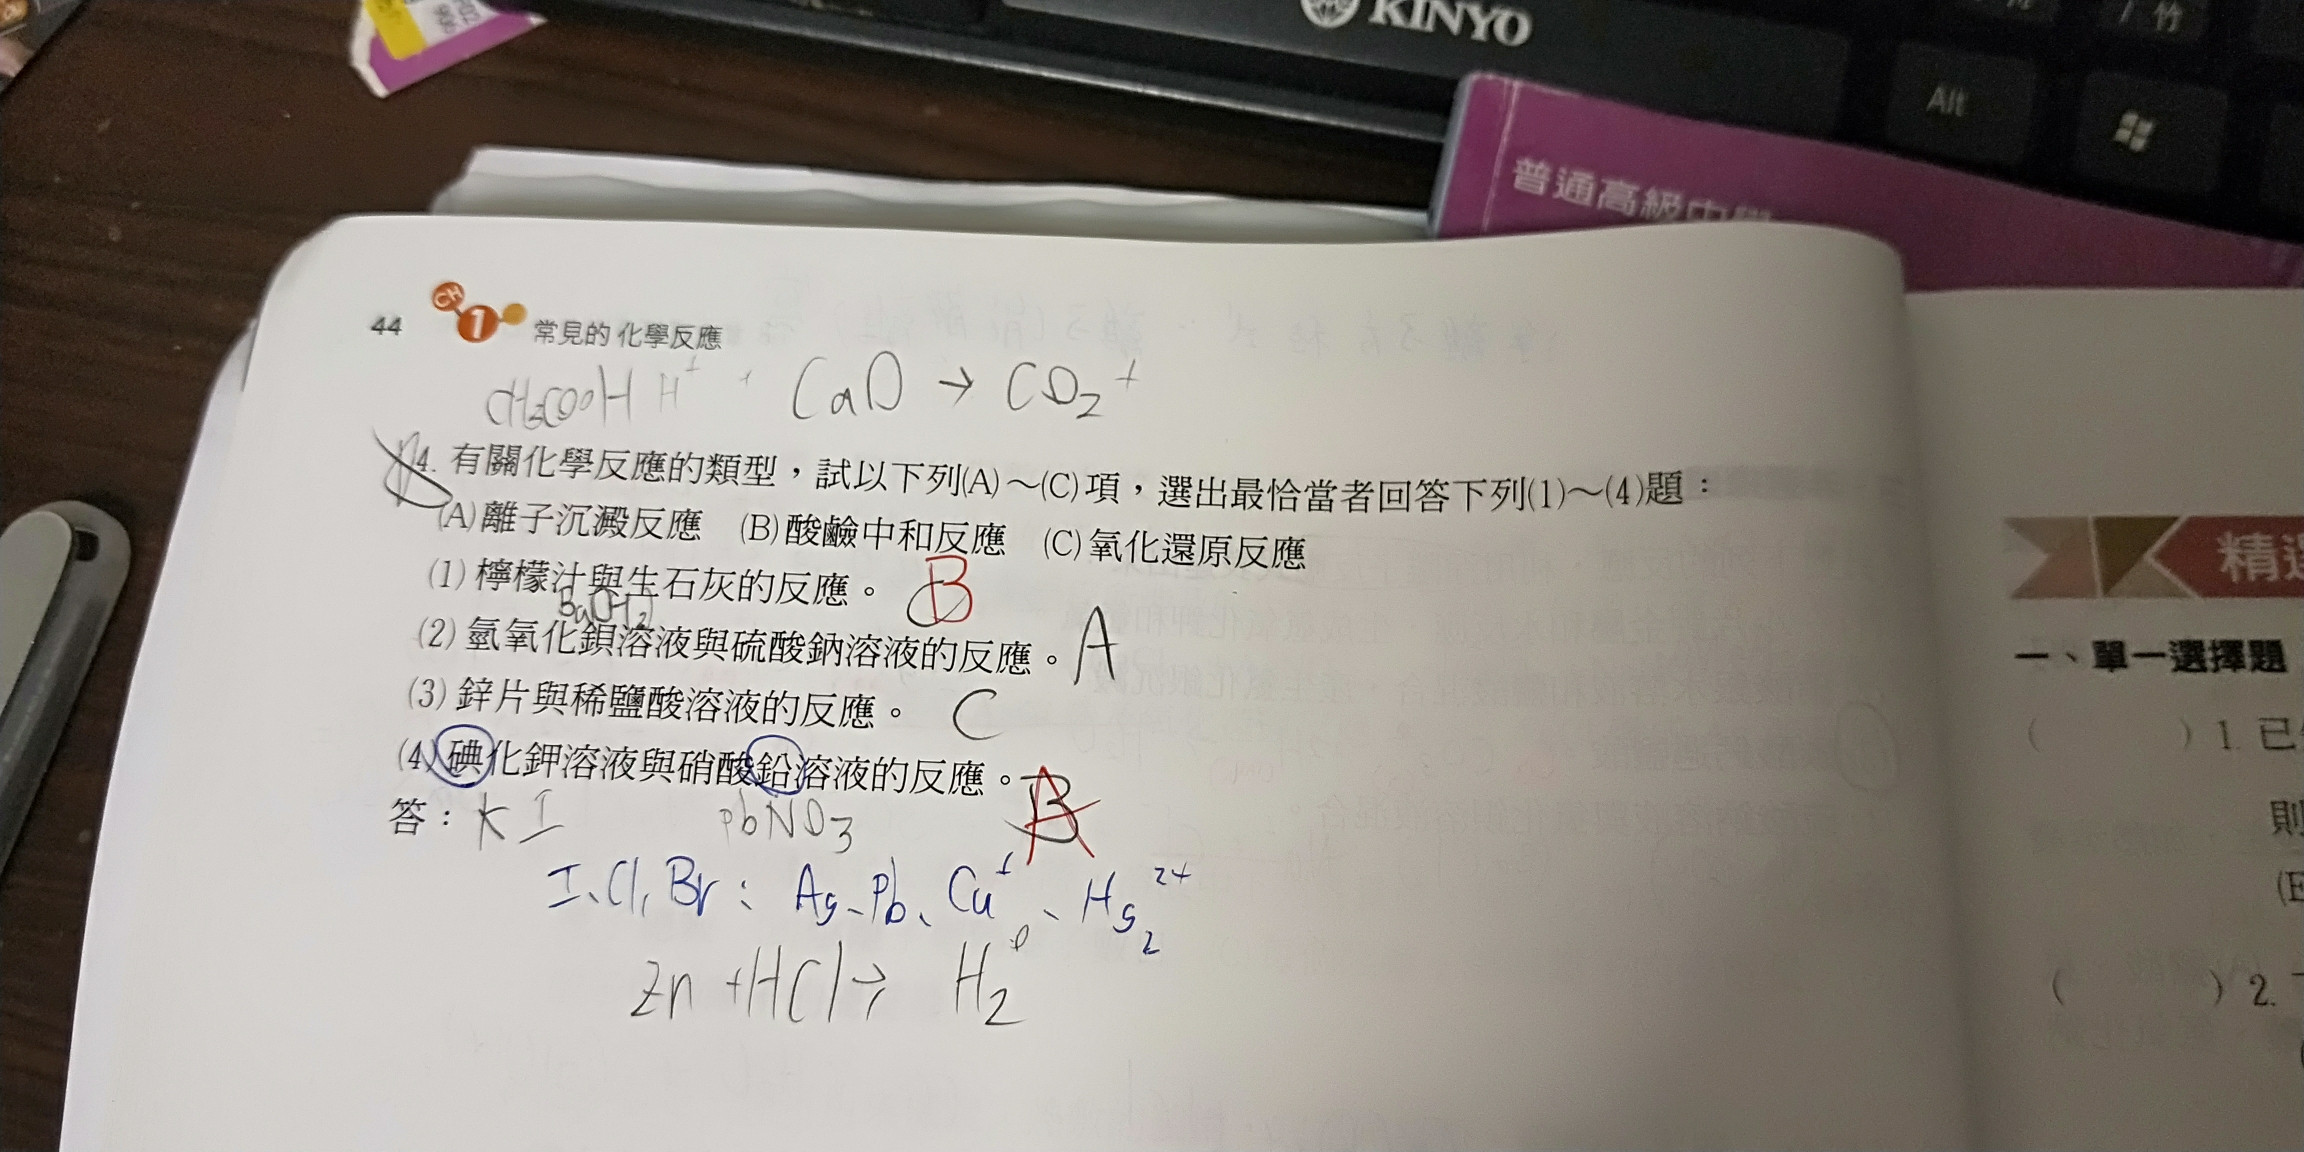 KINYO
竹
Alt
普通高級中學
44 CH 1 常見的化學反應
CH3COOH H+ + CaO → CO2 +
14. 有關化學反應的類型，試以下列(A)～(C)項，選出最恰當者回答下列(1)～(4)題：
(A)離子沉澱反應 (B)酸鹼中和反應 (C)氧化還原反應
(1) 檸檬汁與生石灰的反應。 B
(2) 氫氧化鋇溶液與硫酸鈉溶液的反應。 A
(3) 鋅片與稀鹽酸溶液的反應。 C
(4) 碘化鉀溶液與硝酸鉛溶液的反應。 A
答： KI pbNO3
I、Cl、Br： Ag、Pb、Cu+、Hg2 2+
Zn + HCl → H2
精選
一、單一選擇題
( ) 1. 已
則
(E
( ) 2.